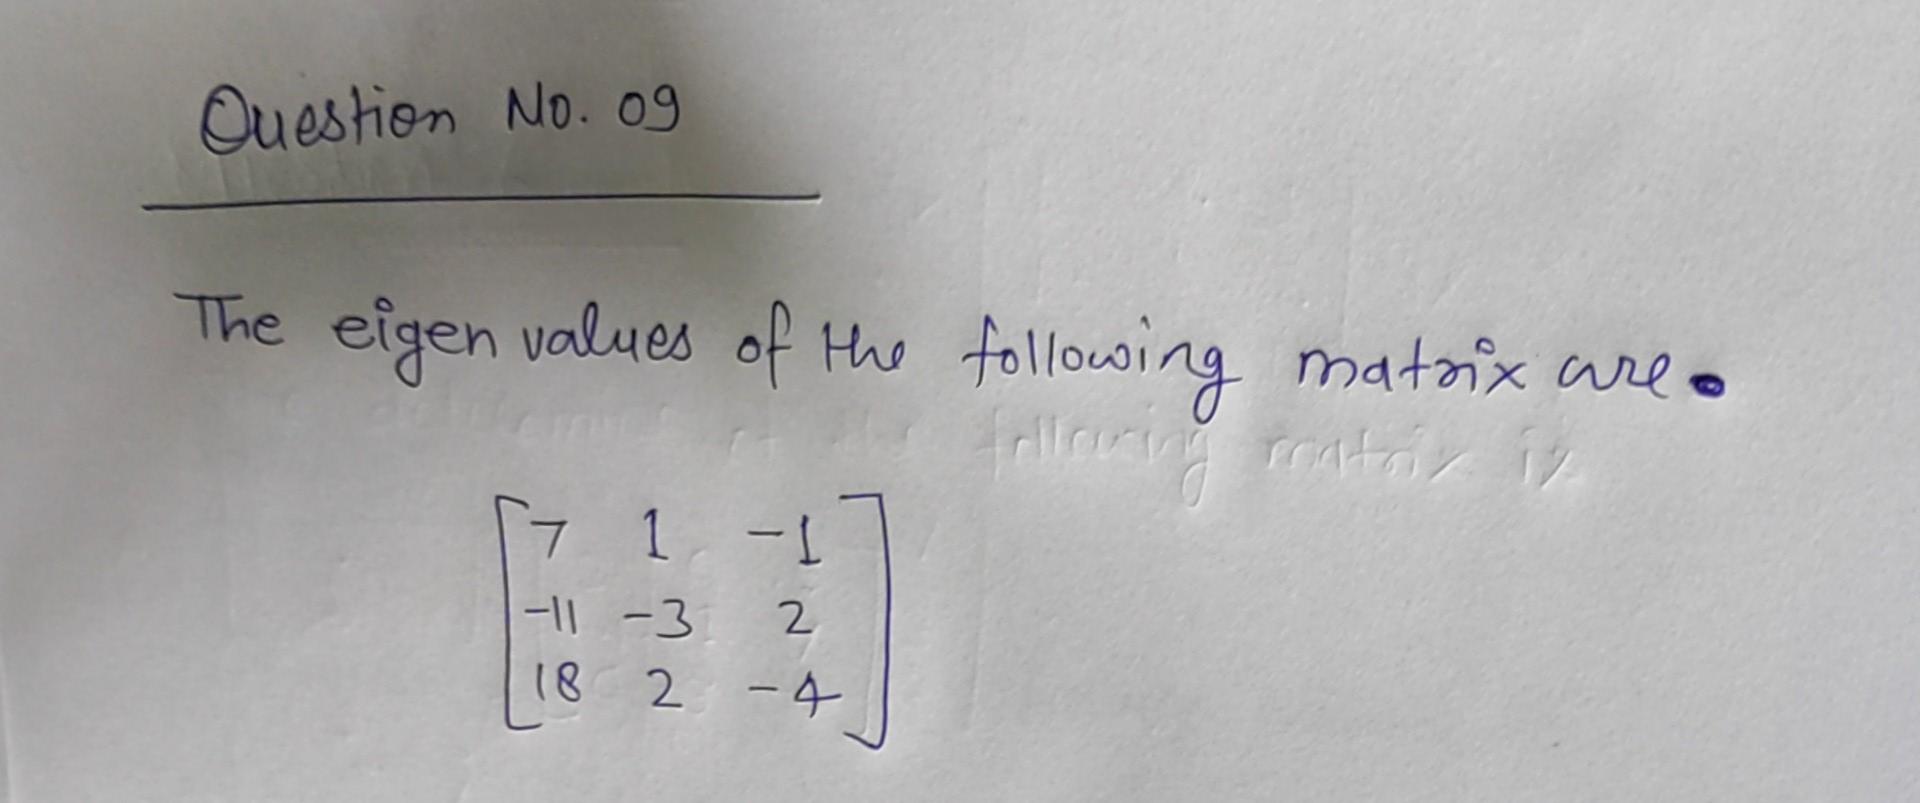 Question No. 09
The eigen values of the following matrix are.
following matrix is
7 1 -1
-11 -3 2
18 2 -4